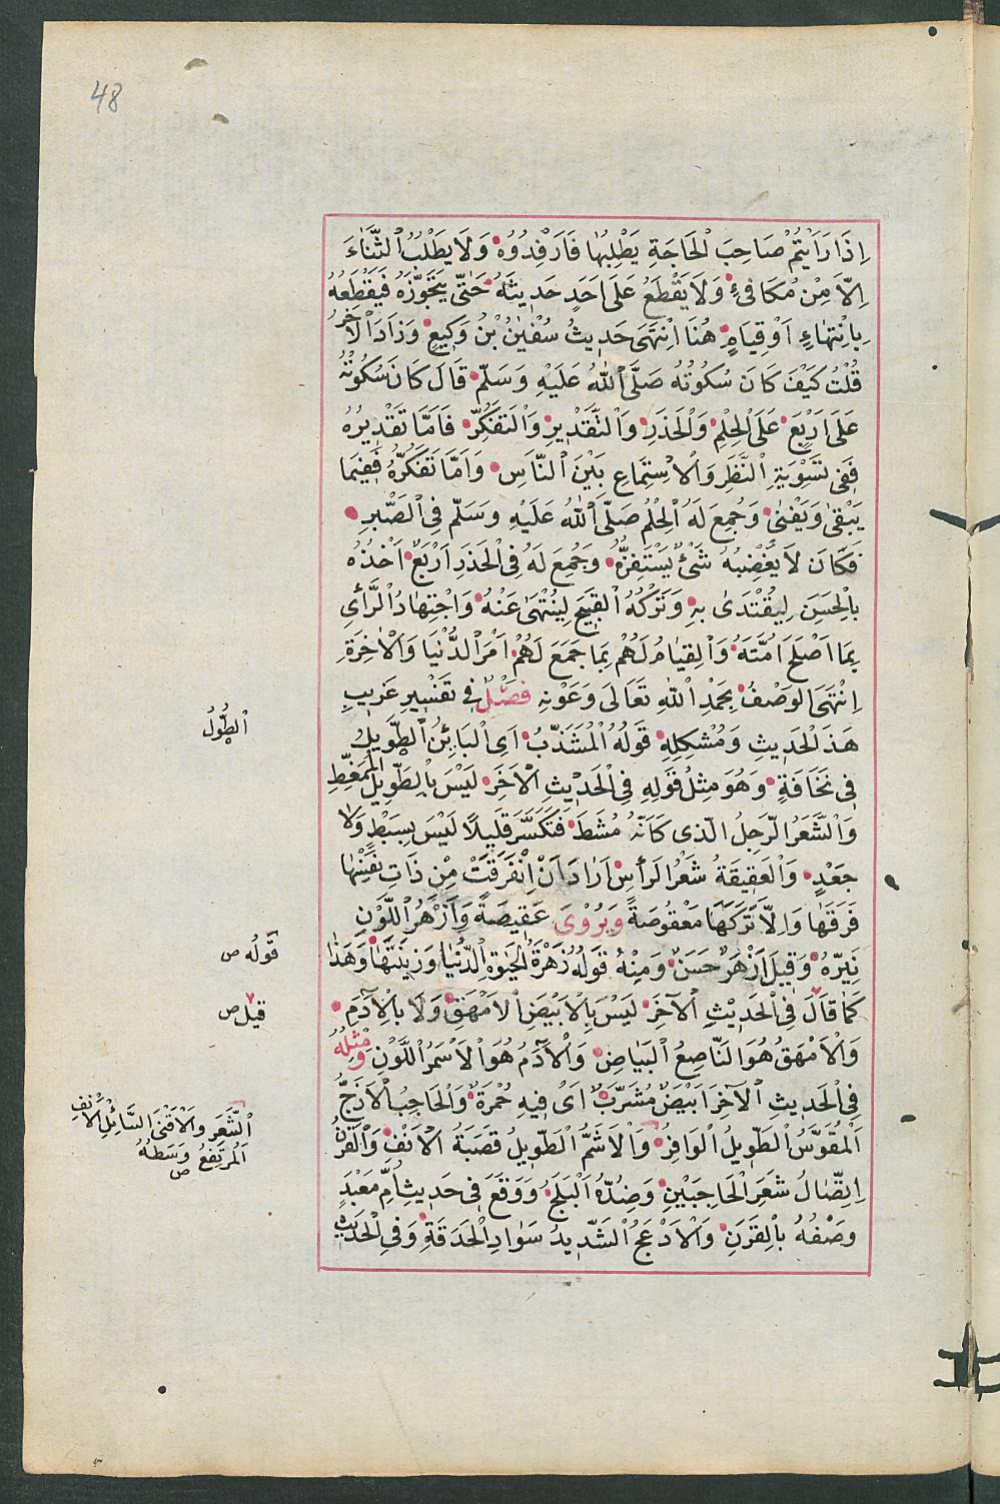 48
اِذَا رَاَيْتُمْ صَاحِبَ الْحَاجَةِ يَطْلُبُهَا فَارْفِدُوُهُ وَلَا يَطْلُبُ الثَّنَاءَ
اِلَّا مِنْ مُكَافِیءٍ وَلَا يَقْطَعُ عَلَى اَحَدٍ حَدِيثَهُ حَتّٰى يَتَجَوَّزَهُ فَيَقْطَعُهُ
بِانْتِهَاءٍ اَوْ قِيَامٍ هُنَا انْتَهَى حَدِيثُ سُفْيٰنُ بْنُ وَكِيعٍ وَزَادَ الْاٰخَرُ
قُلْتُ كَيْفَ كَانَ سُكُوتُهُ صَلَّى اللّٰهُ عَلَيْهِ وَسَلَّمَ قَالَ كَانَ سُكُوتُهُ
عَلَى اَرْبَعٍ عَلَى الْحِلْمِ وَالْحَذَرِ وَالتَّقْدِيرِ وَالتَّفَكُّرِ فَاَمَّا تَقْدِيرُهُ
فَفِى تَسْوِيَةِ النَّظَرِ وَالْاِسْتِمَاعِ بَيْنَ النَّاسِ وَاَمَّا تَفَكُّرُهُ فَفِيمَا
يَبْقٰى وَيَفْنٰى وَجُمِعَ لَهُ الْحِلْمُ صَلَّى اللّٰهُ عَلَيْهِ وَسَلَّمَ فِى الصَّبْرِ
فَكَانَ لَا يُغْضِبُهُ شَىْءٌ يَسْتَفِزُّهُ وَجُمِعَ لَهُ فِى الْحَذَرِ اَرْبَعٌ اَخْذُهُ
بِالْحَسَنِ لِيُقْتَدٰى بِهِ وَتَرْكُهُ الْقَبِيحَ لِيُنْتَهٰى عَنْهُ وَاجْتِهَادُ الرَّأْىِ
بِمَا اَصْلَحَ اُمَّتَهُ وَالْقِيَامُ لَهُمْ بِمَا جَمَعَ لَهُمْ اَمْرَ الدُّنْيَا وَالْاٰخِرَةِ
اِنْتَهَى الْوَصْفُ بِحَمْدِ اللّٰهِ تَعَالَى وَعَوْنِهِ فَصْلٌ فِى تَفْسِيرِ غَرِيبِ
هَذَ الْحَدِيثِ وَمُشْكِلِهِ قَوْلُهُ الْمُشَذَّبُ اَىِ الْبَائِنُ الطَّوِيلُ
فِى نَحَافَةٍ وَهُوَ مِثْلُ قَوْلِهِ فِى الْحَدِيثِ الْاٰخَرِ لَيْسَ بِالطَّوِيلِ الْمُمَغَّطِ
وَالشَّعَرُ الرَّجِلُ الَّذِى كَاَنَّهُ مُشِطَ فَتَكَسَّرَ قَلِيلًا لَيْسَ بِسَبْطٍ وَلَا
جَعْدٍ وَالْعَقِيقَةُ شَعْرُ الرَّأْسِ اَرَادَ اَنِ انْفَرَقَتْ مِنْ ذَاتِ نَفْسِهَا
فَرَقَهَا وَاِلَّا تَرَكَهَا مَعْقُوصَةً وَيُرْوٰى عَقِيصَةً وَاَزْهَرُ اللَّوْنِ
نَيِّرُهُ وَقِيلَ اَزْهَرُ حَسَنٌ وَمِنْهُ قَوْلُهُ زَهْرَةُ الْحَيٰوةِ الدُّنْيَا وَزِينَتُهَا وَهٰذَا
كَمَا قَالَ فِى الْحَدِيثِ الْاٰخَرِ لَيْسَ بِالْاَبْيَضِ الْاَمْهَقِ وَلَا بِالْاٰدَمِ
وَالْاَمْهَقُ هُوَ النَّاصِعُ الْبَيَاضِ وَالْاٰدَمُ هُوَ الْاَسْمَرُ اللَّوْنِ وَمِثْلُهُ
فِى الْحَدِيثِ الْاٰخَرِ اَبْيَضُ مُشَرَّبٌ اَىْ فِيهِ حُمْرَةٌ وَالْحَاجِبُ الْاَزَجُّ
الْمُقَوَّسُ الطَّوِيلُ الْوَافِرُ وَالْاَشَمُّ الطَّوِيلُ قَصَبَةُ الْاَنْفِ وَالْقَرَنُ
اِتِّصَالُ شَعَرِ الْحَاجِبَيْنِ وَضِدُّهُ الْبَلَجُ وَوَقَعَ فِى حَدِيثِ اُمِّ مَعْبَدٍ
وَصْفُهُ بِالْقَرَنِ وَالْاَدْعَجُ الشَّدِيدُ سَوَادِ الْحَدَقَةِ وَفِى الْحَدِيثِ
الطُّوُلُ
قَوْلُه ص
قيل ص
الشَّعَرِ وَالْاَقْنَى السَّائِلُ الْاَنْفِ
الْمُرتَفِعُ وَسَطُهُ
ص